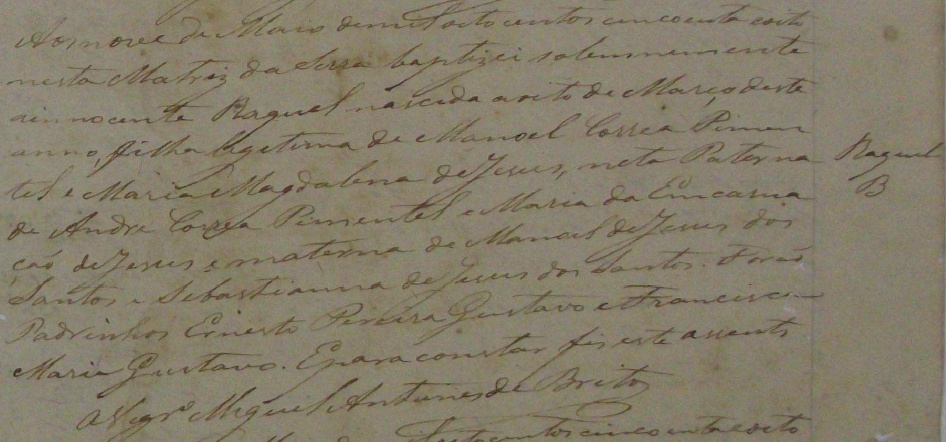 Aos nove de Maio de mil oito centos cincoenta e oito
nesta Matriz da Serra baptizei solemnemente
a innocente Raquel nascida a oito de Março deste
anno, filha legitima de Manoel Correa Pimen
tel e Maria Magdalena de Jesus, neta Paterna
de Andre Correa Pimentel e Maria da Encarna
ção de Jesus e materna de Manoel de Jesus dos
Santos e Sebastianna de Jesus dos Santos. Forão
Padrinhos Ernesto Pereira Gustavo e Francisca
Maria Gustavo. E para constar fis este assento
O Vigrº Miguel Antunes de Brito
oito centos cincoenta e oito
Raquel
B